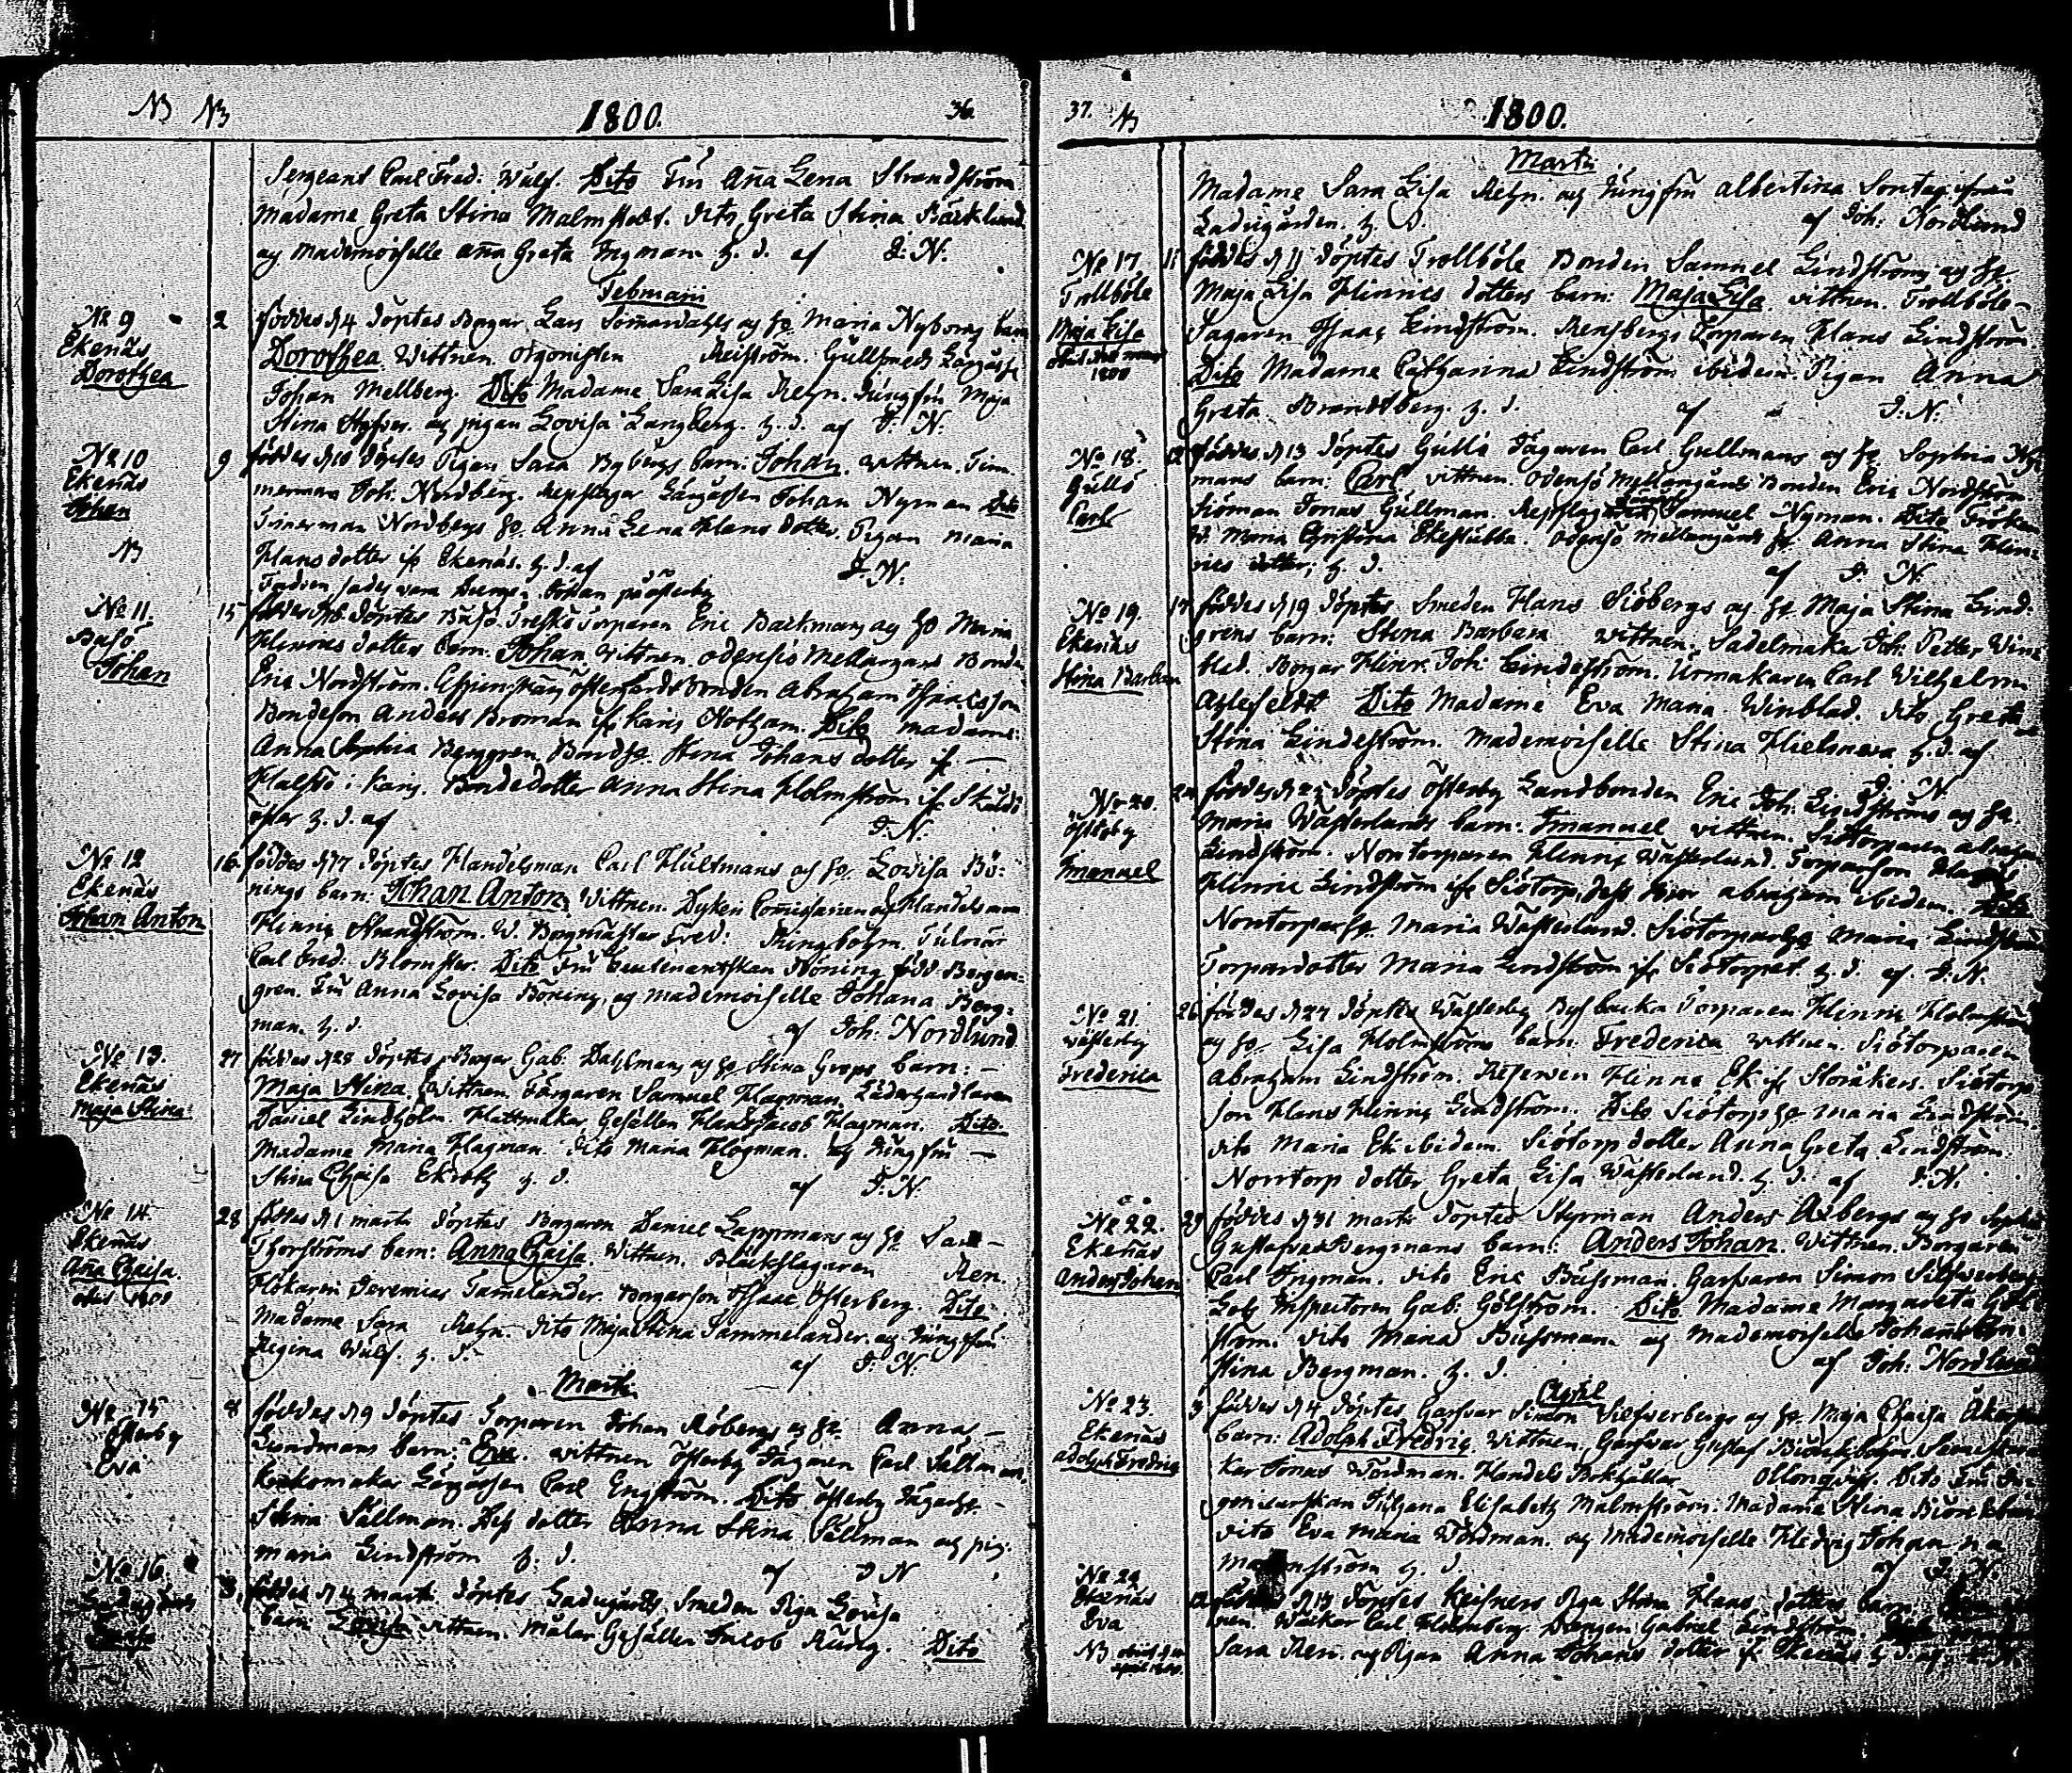 NB NB 1800. 36.
Sergeant Carl Fred: Wulf. Dito Fru Aña Lena Strandström
Madame Greta Stina Malmstedt. dito Greta Stina Bäcklund
og Mademoiselle Aña Greta Ingman h. d. af J: N.
Februarii
No 9 2 föddes d 4 döptes Borgar Lars Sömardahls og ho Maria Nyborgs barn
Ekenäs Dorothea. Wittnen organisten Reiström. Gullsmeds Lärgåsse
Dorothea Johan Mellberg. Dito Madame Sara Lisa Rehn. Jungfru Maja
Stina og pigan Lovisa Langberg. h. d. af J. N.
No 10 9 föddes d 10 döptes Pigan Sara Bybergs barn: Johan. wittnen. Tim-
Ekenäs merman Joh: Nordberg. Repslagar Lärgåssen Johan Nyman Dito
Johan Timerman Nordbergs ho. Anna Lena Hans dotter Pigan Maria
NB Hansdotter if Ekenäs. h. d. af J. N.
Fadren sades vara Drengen Johan på Österby
No 11. 15 föddes d 16 döptes Busö Torparen Eric Backmans og ho Maria
Busö Henrics dotters barn. Johan. Wittnen. Odensö Mellangårds Bonden
Johan Eric Nordström. Östergårds Bonden Abraham Isacsson
Bondeson Anders Broman if Karis. Dito Madame:
Anna Sophia Berggren. Bondho. Stina Johans dotter if —
Halstö i Karis. Bondedotter Anna Stina Holmström if Skåldö
öster h. d. af J. N.
No 12 16 föddes d 17 döptes Handelsman Carl Hultmans og ho. Lovisa Bö-
Ekenäs nings barn: Johan Anton. Wittnen. Dykeri Comissarien og Handelsman
Johan Anton Henric Strandström. W. Borgmästar Fred: Ringbolm. Tulnär
Carl Fred: Blomster. Dito Fru Leutenantskan Böning född Bergen-
gren. Fru Anna Lovisa Böning, og Mademoiselle Johana Berg-
man. h. d. af Joh: Nordlund.
No 13. 27 föddes d 28 döptes Borgar Gab: Dahlmans og ho Stina Grops barn: —
Ekenäs Maja Stina. Wittnen. Färgaren Samuel Hagman. Läderhandlaren
Maja Stina Daniel Lindholm. Hattmakar Gesällen Hans Jacob Hagman. Dito.
Madame Maria Hagman. dito Maria Högman. og Jungfru —
Stina Chaisa Ekroth h. d. af J. N.
No 14 28 föddes d 1 marti döptes Borgaren Daniel Lappmans og ho Sara —
Ekenäs Thorströms barn: Anna Chaisa. Wittnen. Bläckslagaren Ren.
Aña Chaisa. Hökaren Jeremias Tamelander. Borgarson Isaac Österberg. Dito
Madame Sara Rehn. dito Maja Stina Tammelander. og Jungfru
Regina Wulf. h. d. af J. N.
Marti
No 15 8 föddes d 9 döptes Torparen Johan Röbergs og ho. Annas —
Österby Lundmans barn: Eva. wittnen Österby Jägaren Carl Sällman.
Eva Krukomakar Lärgåssen Carl Engström. Dito Österby Jägarho —
Stina Sällman. Dess dotter Anna Stina Sällman og pig.
Maria Lindström h. d. af J N
No 16. 3. föddes d 4 marti döptes Ladugårds Smeden Piga Lovisa
barn Lovisa wittnen. Målar Gesällen Jacob Rung. Dito
37. NB 1800.
Marti
Madame Sara Lisa Rehn. og Jungfru Albertina Sontag ifrån
Ladugården. h. d. af Joh: Nordlund
No 17 11 föddes d 11 döptes Trollböle Bonden Samuel Lindströms og ho.
Trollböle Maja Lisa Hinrics dotters barn: Maja Lisa. vittnen. Trollböle —
Maja Lisa Jagaren Isaac Lindström. Rensbergs Torparen Hans Lindström
1800 Dito Madame Catharina Lindström ibidem. Pigan Anna
Greta Brandtberg. h. d. af J. N.
No 18. 12 föddes d 13 döptes Gullö Jägaren Carl Gullmans og ho Sophia
Gullö mans barn: Carl. vittnen. Odensö Mellangårds Bonden Eric Nordström
Carl Siöman Jonas Gullman. Repslagar Samuel Nyman. Dito Fröken
W. Maria Christina Ekestubba. Odensö Mellangårds ho. Anna Stina Hin-
rics dotter; h. d. af J. N.
No 19. 17 föddes d 19 döptes Smeden Hans Siöbergs og ho Maja Stina Lind-
Ekenäs grens barn: Stina Barbara wittnen. Sadelmakar Joh: Petter Win-
Stina Barbara blad. Borgar Hinr: Joh: Lindeström. Urmakaren Carl Wilhelm
Dito Madame Eva Maria Winblad. dito Greta
Stina Lindeström. Mademoiselle Stina h. d. af
J. N.
No 20. föddes d 25 döptes Österby Landbonden Eric Joh: Lindströms og ho.
Österby Maria Wästerlunds barn: Emanuel. vittnen. Siötorparen Abraham
Emanuel Lindström. Norrtorparen Hinric Wästerlund. Torparson
Hinric Lindström if Siötorp, dess Bror Abraham ibidem. Dito
Norrtorparho. Maria Wästerlund. Siötorparho Maria Lindström
Torpardotter Maria Lindström if Siötorpet h. d. af J. N.
No 21. 26 föddes d 27 döptes Wästerby Torparen Hinric Holmströms
Wästerby og ho. Lisa Holmströms barn: Frederica wittnen. Siötorparen
Frederica Abraham Lindström. Hinric Ek if Storåkers. Siötorp
son Hans Hinric Lindström. Dito Siötorpho Maria Lindström
dito Maria Ek ibidem. Siötorp dotter Anna Greta Lindström.
Norrtorp dotter Greta Lisa Wästerlund. h. d. af J. N.
No 22. 29 föddes d 31 martii döptes Styrman Anders Axbergs og ho Sophia
Ekenäs Gustafva Bergmans barn: Anders Johan. Wittnen. Borgaren
Anders Johan Carl Ingman. dito Eric Bussman. Garfvaren Simon Silfverberg
Inspectoren Gab: Gölström. Dito. Madame Margareta Göl-
ström. dito Maria Bussman. og Mademoiselle Johana
Stina Bergman. h. d. af Joh: Nordlund
April
No 23. 3 föddes d 4 döptes Garfvar Simon Silfverbergs og ho. Maja Chaisa
Ekenäs barn: Adolph Fredric. Wittnen. Garfvar Gustaf
Adolph Fredric kar Jonas Wördman. Handels Bokhållar Ollonqvist. Dito Fru In-
genieurskan Juliana Elisabeth Malmström: Madame Stina
dito Eva Maria Wördman. og Mademoiselle Hedvig Johanna
Malmström h. d. af J. N.
No 24 12 föddes d 13 döptes Piga Stina Hans dotters barn
Ekenäs Carl Holmberg. Drengen Gabriel Lindström.
Eva Sara Ren. og Pigan Anna Johans dotter if Ekenäs h. d. af J. N.
NB april 1800.